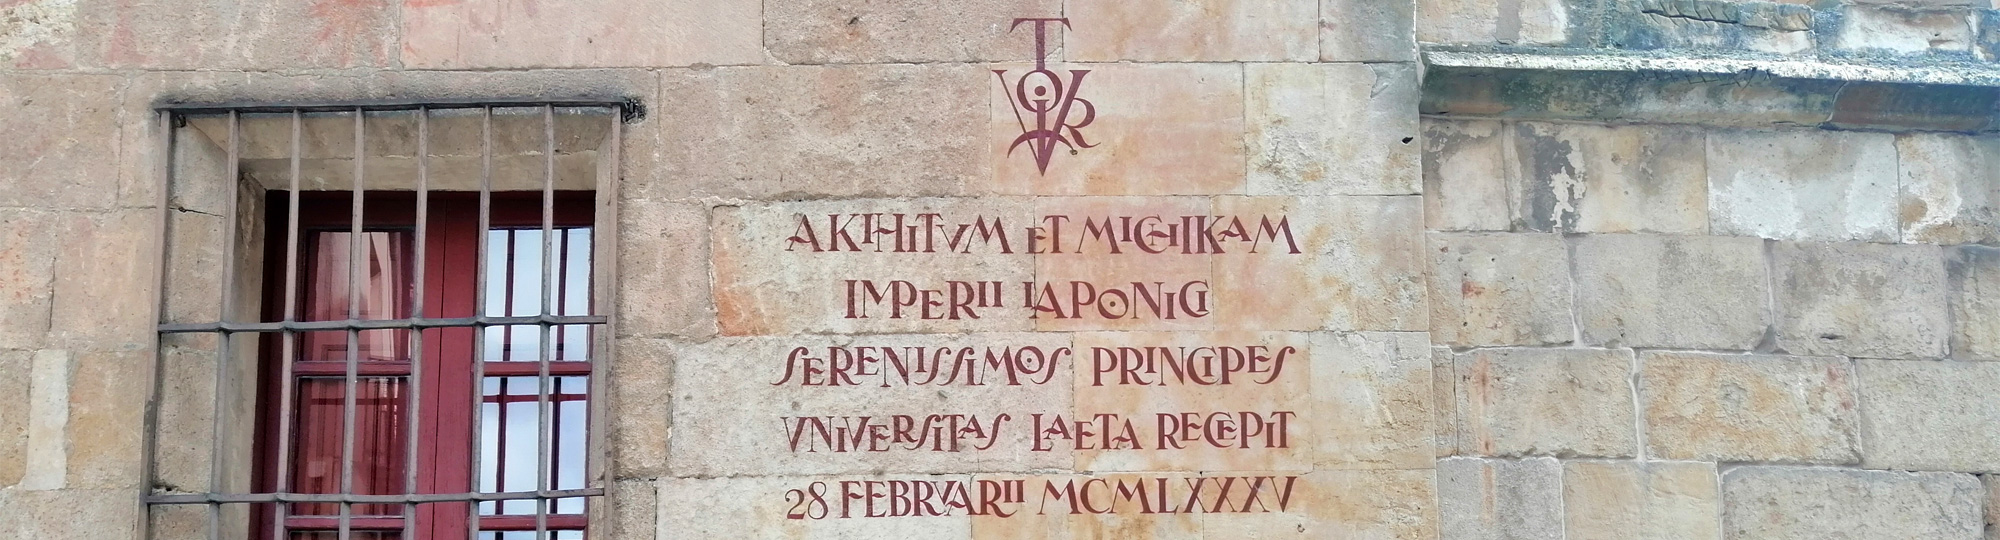 AKIHITVM ET MICHIKAM
IMPERII IAPONICI
SERENISSIMOS PRINCIPES
VNIVERSITAS LAETA RECEPIT
28 FEBRVARII MCMLXXXV